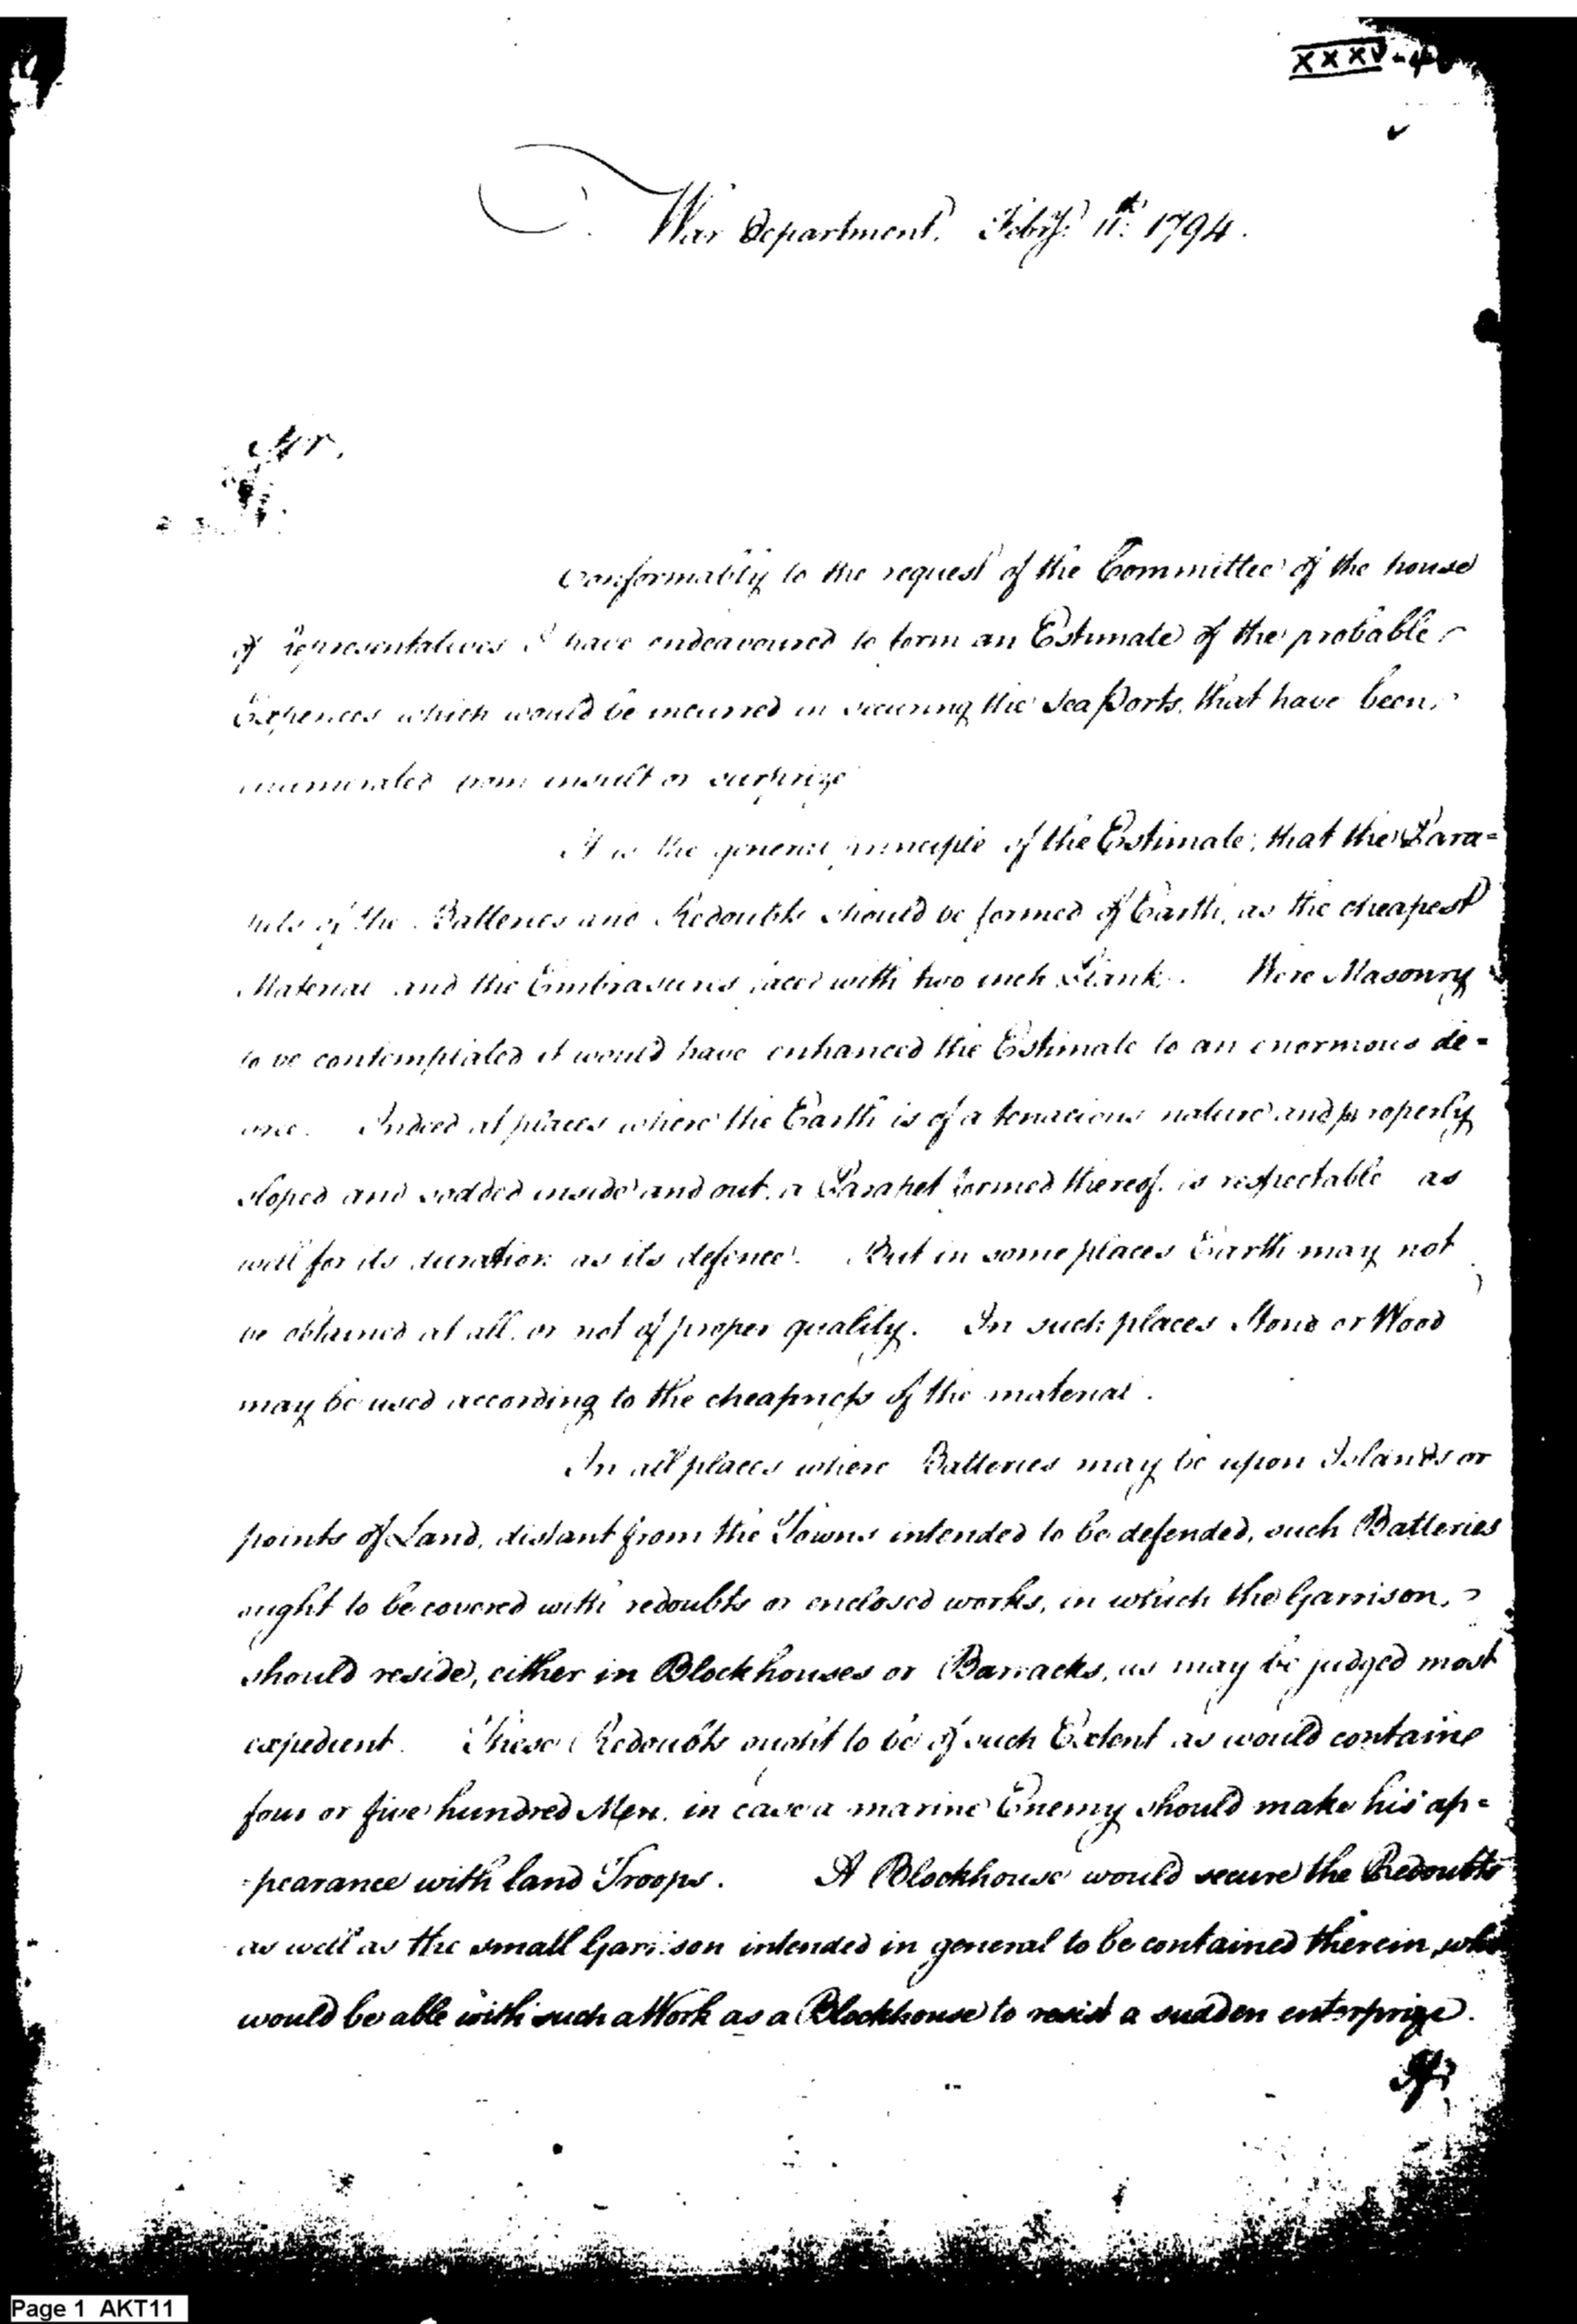 XXXV-
War Department. Feby. 11th. 1794.
Conformably to the request of the Committee of the house
of representatives I have endeavoured to form an Estimate of the probable
Expences which would be incurred in securing the Sea Ports, that have been
enumerated from insult or surprize
It is the general principle of the Estimate, that the Para=
pets of the Batteries and Redoubts should be formed of Earth, as the cheapest
Material and the Embrasures faced with two inch Plank. Were Masonry
to be contemplated it would have enhanced the Estimate to an enormous de=
gree. Indeed at places where the Earth is of a tenacious nature and properly
sloped and sodded inside and out, a Parapet formed thereof, is respectable as
well for its duration as its defence. But in some places Earth may not
be obtained at all, or not of proper quality. In such places Stone or Wood
may be used according to the cheapness of the material.
In all places where Batteries may be upon Islands or
points of Land, distant from the Towns intended to be defended, such Batteries
ought to be covered with redoubts or enclosed works, in which the Garrison,
should reside, either in Blockhouses or Barracks, as may be judged most
expedient. These Redoubts ought to be of such Extent as would contain
four or five hundred Men, in case a marine Enemy should make his ap=
-pearance with land Troops. A Blockhouse would secure the Redoubts
as well as the small Garrison intended in general to be contained therein, who
would be able with such a Work as a Blockhouse to resist a sudden enterprize.
Page 1 AKT11